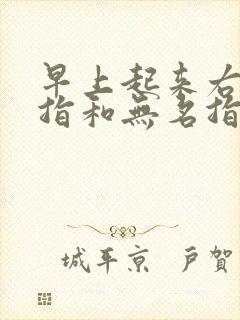 早上起来右
指和無名指
城平京 戸賀